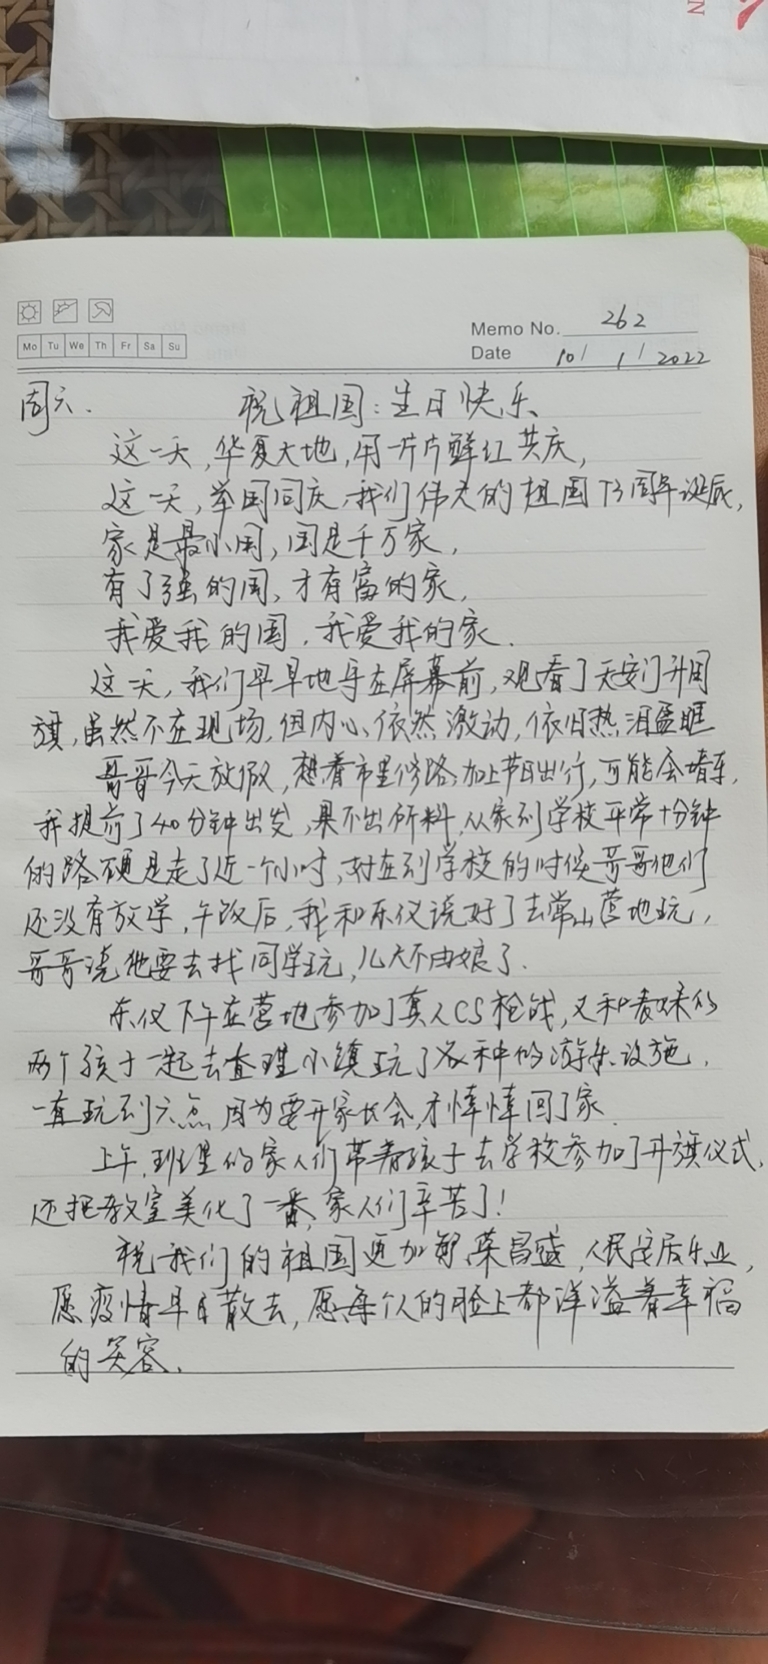 Mo Tu We Th Fr Sa Su
Memo No. 262
Date 10/ 1/2022
周六. 祝祖国:生日快乐
这一天,华夏大地,用一片片鲜红共庆,
这一天,举国同庆,我们伟大的祖国73周年诞辰,
家是最小国,国是千万家,
有了强的国,才有富的家,
我爱我的国,我爱我的家.
这一天,我们早早地守在屏幕前,观看了天安门升国
旗,虽然不在现场,但内心依然激动,依旧热泪盈眶
哥哥今天放假,想着市里修路,加上节日出行,可能会堵车,
我提前了40分钟出发,果不出所料,从家到学校平常十分钟
的路硬是走了近一个小时,好在到学校的时候哥哥他们
还没有放学,午饭后,我和东仪说好了去常山营地玩,
哥哥说他要去找同学玩,儿大不由娘了.
东仪下午在营地参加了真人CS枪战,又和表妹的
两个孩子一起去查理小镇玩了各种的游乐设施,
一直玩到六点,因为要开家长会,才悻悻回了家.
上午,班里的家人们带着孩子去学校参加了升旗仪式,
还把教室美化了一番,家人们辛苦了!
祝我们的祖国更加繁荣昌盛,人民安居乐业,
愿疫情早日散去,愿每个人的脸上都洋溢着幸福
的笑容.